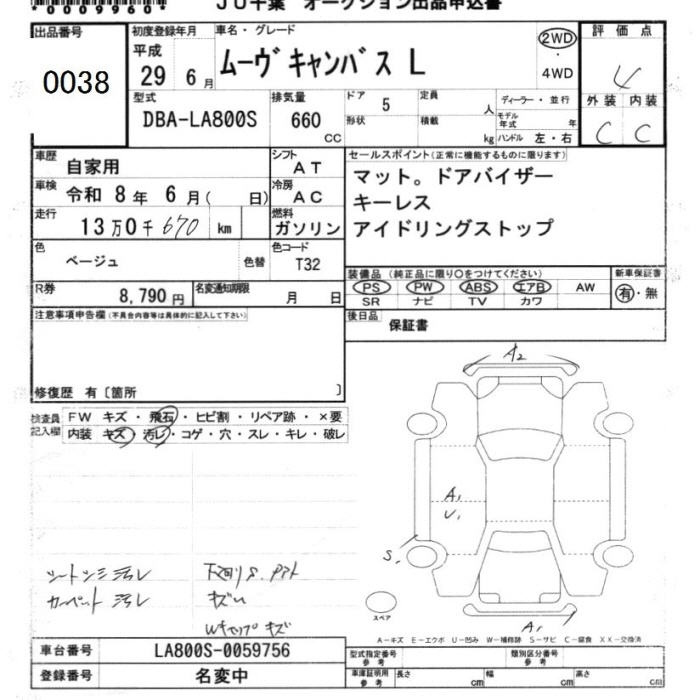 *00099604*
JU千葉 オークション出品申込書
出品番号
0038
初度登録年月
平成
29 6月
車名・グレード
ムーヴキャンバス L
2WD
・4WD
評価点
4
外装 内装
C C
型式
DBA-LA800S
排気量
660
CC
ドア 5
定員 人
形状
積載 kg
ディーラー・並行
モデル年式 年
ハンドル 左・右
車歴
自家用
シフト
AT
車検
令和 8年 6月( 日)
冷房
AC
走行
13万0千670 km
燃料
ガソリン
色
ベージュ
色替
色コード
T32
R券
8,790円
名変通知期限
月 日
セールスポイント(正常に機能するものに限ります)
マット。ドアバイザー
キーレス
アイドリングストップ
装備品(純正品に限り○をつけてください)
新車保証書
PS PW ABS エアB AW
SR ナビ TV カワ
有・無
後日品
保証書
注意事項申告欄(不具合内容等は具体的に記入して下さい)
修復歴 有〔箇所 〕
検査員記入欄
FW キズ・飛石・ヒビ割・リペア跡・×要
内装 キズ・汚レ・コゲ・穴・スレ・キレ・破レ
A2
A1
U1
S1
シートシミ汚レ
カーペット汚レ
下回りS.
キズ
Wキャップキズ
スペア
A1
A-キズ E-エクボ U-凹み W-補修跡 S-サビ C-腐食 XX-交換済
車台番号
LA800S-0059756
登録番号
名変中
型式指定番号
参考
類別区分番号
参考
車庫証明用
参考
長さ cm
幅 cm
高さ cm